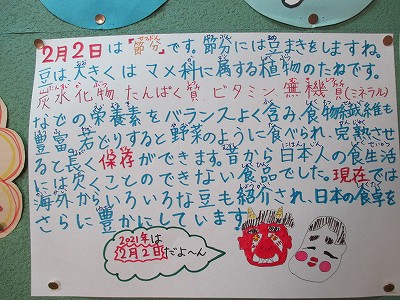 2月2日は『節分』です。節分には豆まきをしますね。
豆は大きくはマメ科に属する植物のたねです。
炭水化物 たんぱく質 ビタミン 無機質(ミネラル)
などの栄養素をバランスよく含み、食物繊維も
豊富。若どりすると野菜のように食べられ、完熟させ
ると長く保存ができます。昔から日本人の食生活
には欠くことのできない食品でした。現在では
海外からいろいろな豆も紹介され、日本の食卓を
さらに豊かにしています。
2021年は
2月2日だよ〜ん